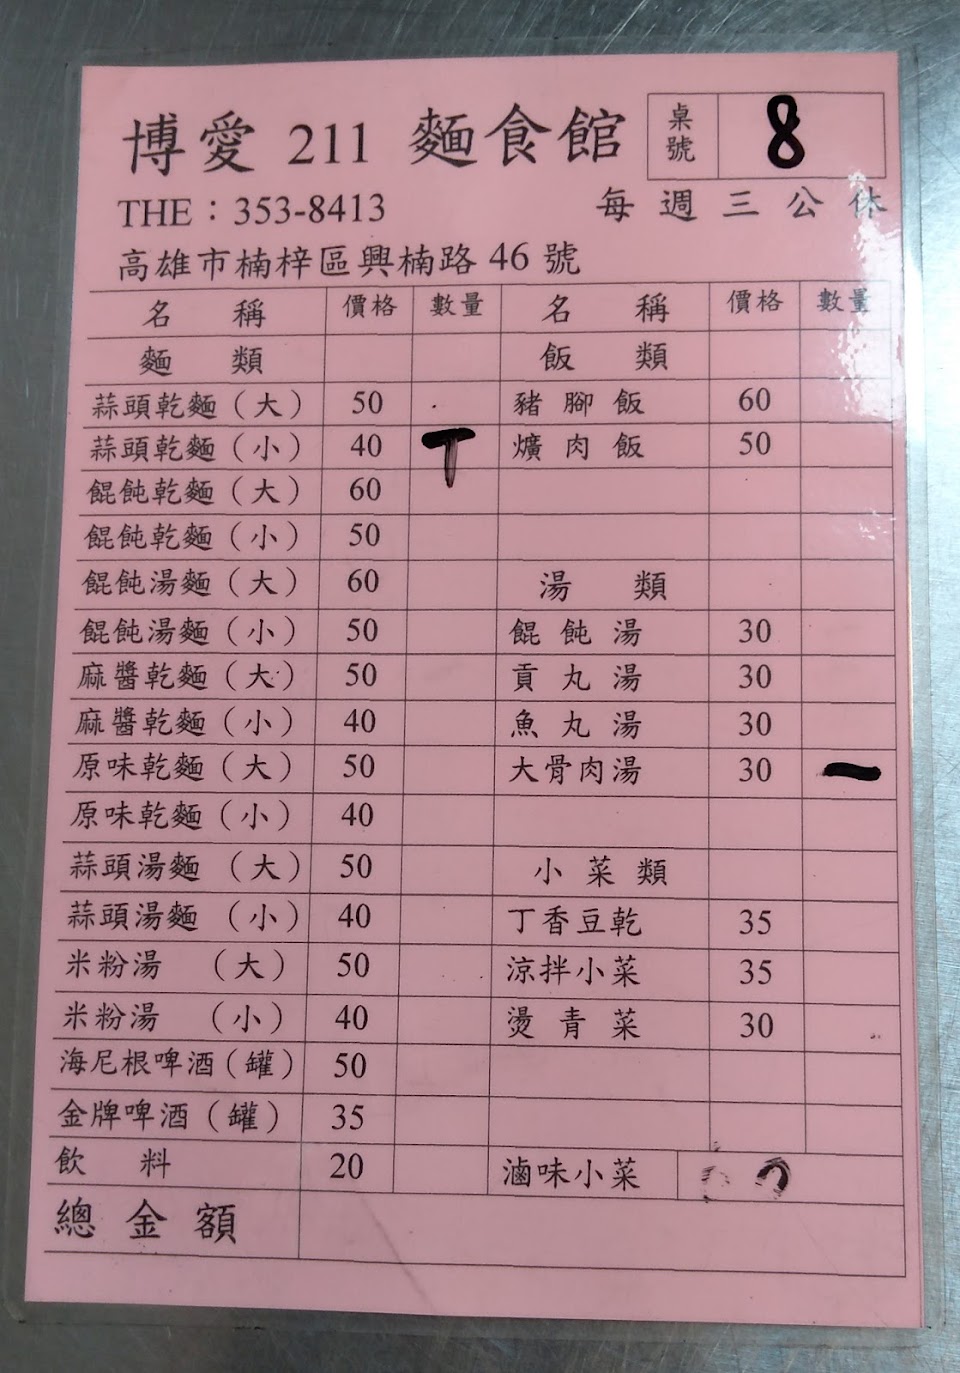 博愛 211 麵食館 桌號 8
THE：353-8413 每週三公休
高雄市楠梓區興楠路 46 號
名稱 價格 數量 名稱 價格 數量
麵類 飯類
蒜頭乾麵（大） 50 豬腳飯 60
蒜頭乾麵（小） 40 爌肉飯 50
餛飩乾麵（大） 60
餛飩乾麵（小） 50
餛飩湯麵（大） 60 湯類
餛飩湯麵（小） 50 餛飩湯 30
麻醬乾麵（大） 50 貢丸湯 30
麻醬乾麵（小） 40 魚丸湯 30
原味乾麵（大） 50 大骨肉湯 30 一
原味乾麵（小） 40
蒜頭湯麵（大） 50 小菜類
蒜頭湯麵（小） 40 丁香豆乾 35
米粉湯（大） 50 涼拌小菜 35
米粉湯（小） 40 燙青菜 30
海尼根啤酒（罐） 50
金牌啤酒（罐） 35
飲料 20 滷味小菜
總金額